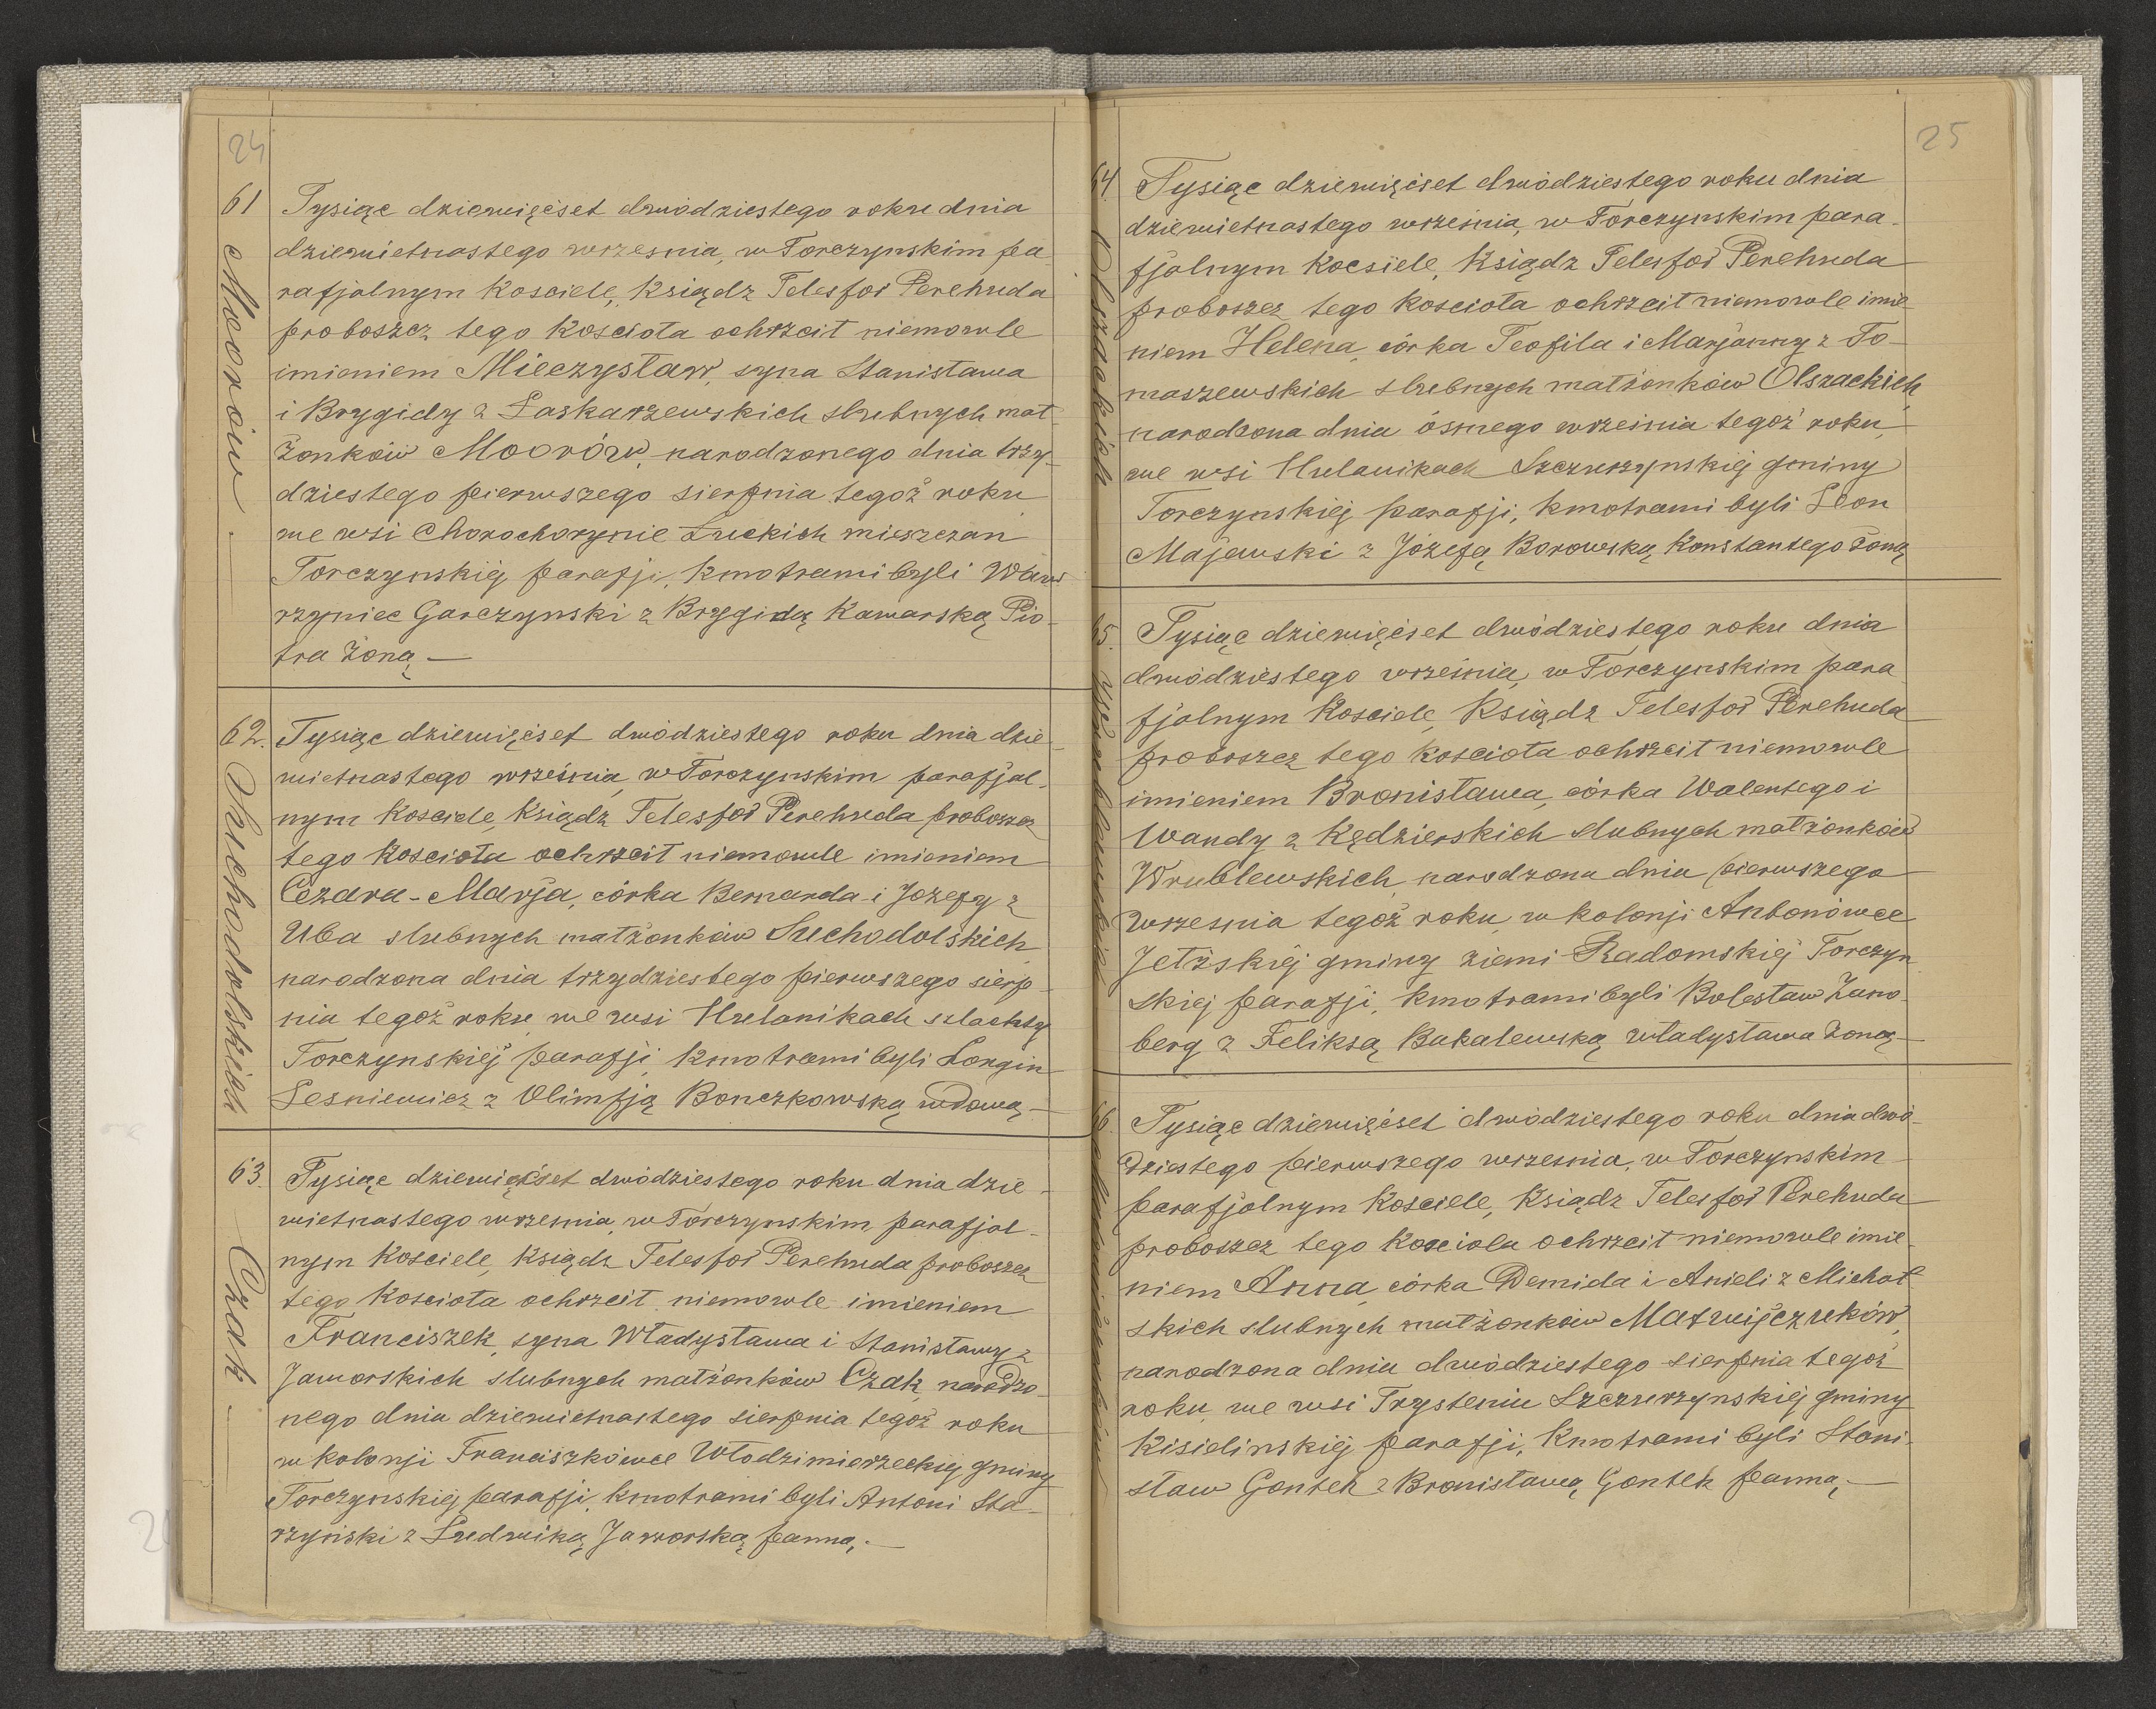 24
61
Moorów
Tysiąc dziewięćset dwódziestego roku dnia
dziewietnastego wrzesnia, w Torczynskim pa
rafjalnym Kosciele, Ksiądz Telesfor Perehuda
proboszcz tego Kosciota ochrzcit niemowle
imieniem Mieczystaw, syna Stanistawa
i Brygidy z Laskarzewskich slubnych mat
żonków Moorów, narodzonego dnia trzy-
dziestego pierwszego sierpnia tegoż roku
we wsi Chorochorynie Łuckich mieszczan
Torczynskiej parafji, Kmotrami byli Waw
rzyniec Garczynski z Brygidą Kawarską Pio-
tra żoną —
62.
Suchodolskich
Tysiąc dziewięćset dwódziestego roku dnia dzie-
wietnastego września, w Torczynskim parafjal-
nym Kosciele, Ksiądz Telesfor Perehuda proboszcz
tego Kosciota ochrzcit niemowle imieniem
Cezara-Marja, córka Bernarda i Jozefy z
Uba slubnych matżonków Suchodolskich,
narodzona dnia trzydziestego pierwszego sierp-
nia tegoż roku we wsi Hulanikach szlachty
Torczynskiej parafji, Kmotrami byli Longin
Lesniewicz z Olimpją Bonczkowską wdową. —
63.
Czak
Tysiąc dziewięćset dwódziestego roku dnia dzie-
wietnastego wrzesnia, w Torczynskim parafjal-
nym Kosciele, Ksiądz Telesfor Perehuda proboszcz
tego Kosciota ochrzcit niemowle imieniem
Franciszek, syna Władystawa i Stanistawy z
Jaworskich slubnych matżonków Czak, narodzo-
nego dnia dziewietnastego sierpnia tegoż roku
w kolonji Franciszkówce Włodzimierzeckiej gminy
Torczynskiej parafji, Kmotrami byli Antoni Sta-
rzyński z Ludwiką Jaworską panną. —
25
64.
Olszackich
Tysiąc dziewięćset dwódziestego roku dnia
dziewietnastego września, w Torczynskim para-
fjalnym Kocsiele, Ksiądz Telesfor Perehuda
proboszcz tego Kosciota ochrzcit niemowle imie
niem Helena, córka Teofila i Marjanny z To-
maszewskich slubnych matżonków Olszackich,
narodzona dnia ósmego września tegoż roku,
we wsi Hulanikach Szczurzynskiej gminy
Torczynskiej parafji, Kmotrami byli Leon
Majewski z Józefą Borowską Konstantego żoną
65.
Tysiąc dziewięćset dwódziestego roku dnia
dwódziestego września, w Torczynskim para
fjalnym Kosciele, Ksiądz Telesfor Perehuda
proboszcz tego Kosciota ochrzcit niemowle
imieniem Bronistawa, córka Walentego i
Wandy z Kędzierskich slubnych matżonków
Wrublewskich narodzona dnia pierwszego
wrzesnia tegoż roku, w kolonji Antonówce
Jetżskiej gminy ziemi Radomskiej Torczyn
skiej parafji, Kmotrami byli Bolestaw Zano-
berg z Feliksą Bakalewską Władystawa żoną —
66.
Tysiąc dziewięćset dwódziestego roku dnia dwó-
dziestego pierwszego wrzesnia, w Torczynskim
parafjalnym Kosciele, Ksiądz Telesfor Perehuda
proboszcz tego Kosciola ochrzcit niemowle imie-
niem Anna, córka Demida i Anieli z Michał
skich slubnych matżonków Matwijczuków,
narodzona dnia dwódziestego sierpnia tegoż
roku, we wsi Trysteniu Szczurzynskiej gminy
Kisielinskiej parafji, Kmotrami byli Stani-
staw Gontek z Bronistawą Gontek panną. —